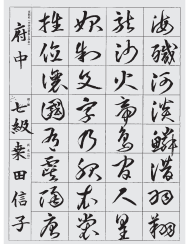 海鹹河淡鱗潛羽翔
龍師火帝鳥官人皇
始制文字乃服衣裳
推位讓國有虞陶唐
府中 七級 桒田信子